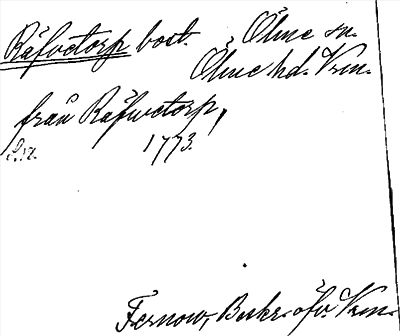 Räfvetorp bost. Ölme sn.
Ölme hd. Vrm.
från Räfwetorp,
1773.
Fernow, Beskr. öfv. Vrm.